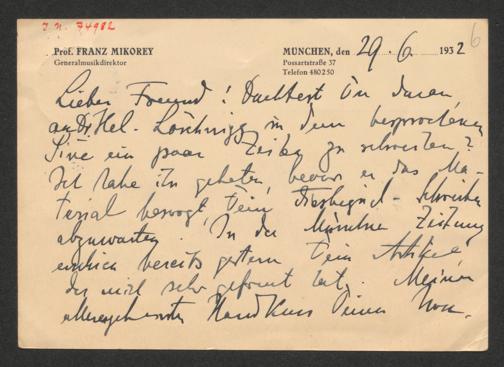 J. N. 74982
6
Prof. FRANZ MIKOREY
Generalmusikdirektor
MÜNCHEN, den 29. 6. 1932
Possartstraße 37
Telefon 480250
Lieber Freund! Dachtest Du daran
an Löschnigg in dem besprochenen
Sinne ein paar Zeilen zu schreiben?
Ich habe ihn gebeten, bevor er das Ma-
terial besorgt, Dein Schreiben
abzuwarten. In der Münchner Zeitung
erschien bereits gestern Dein Artikel
der mich sehr gefreut hat. Meinen
Handkuss Deiner